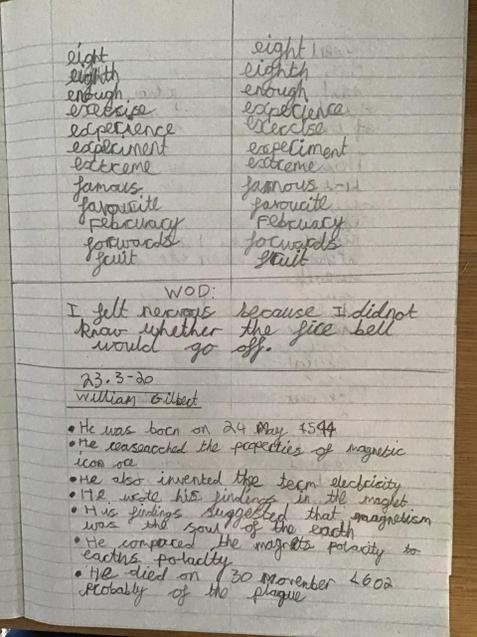 eight eight
eighth eighth
enough enough
exercise experience
experience exercise
experiment experiment
extreme extreme
famous famous
favourite favourite
February February
forwards forwards
fruit fruit
WOD:
I felt nervous because I didnot
know whether the fire bell
would go off.
23.3-20
William Gilbert
• He was born on 24 May 1544
• He reasearched the properties of magnetic
iron ore
• He also invented the term electricity
• He wrote his findings in the maglet
• His findings suggested that magnetism
was the soul of the earth
• He compared the magnets polarity to
earths polarity
• He died on 30 November 1602
probably of the plague